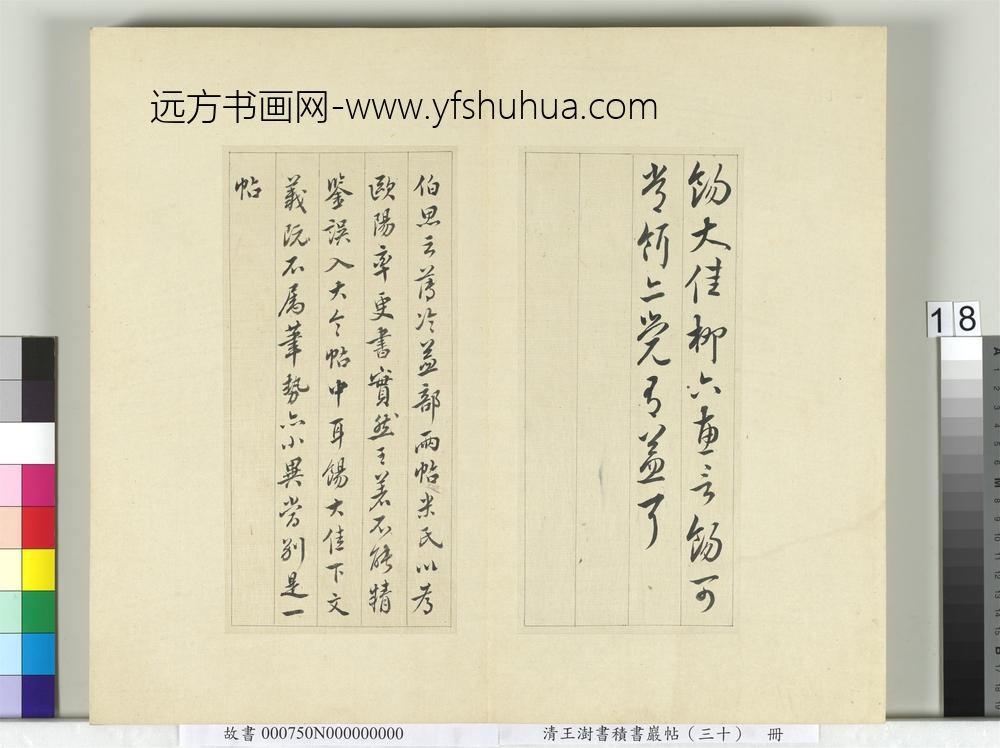 远方书画网-www.yfshuhua.com
餳大佳柳下惠言餳可
常餌亡覺有益耳
伯思云薄冷益部兩帖米氏以為
歐陽率更書實然王著不能精
鑒誤入大令帖中耳餳大佳下文
義既不屬筆勢亦小異當別是一
帖
18
故書 000750N000000000
清王澍書積書巖帖（三十） 冊